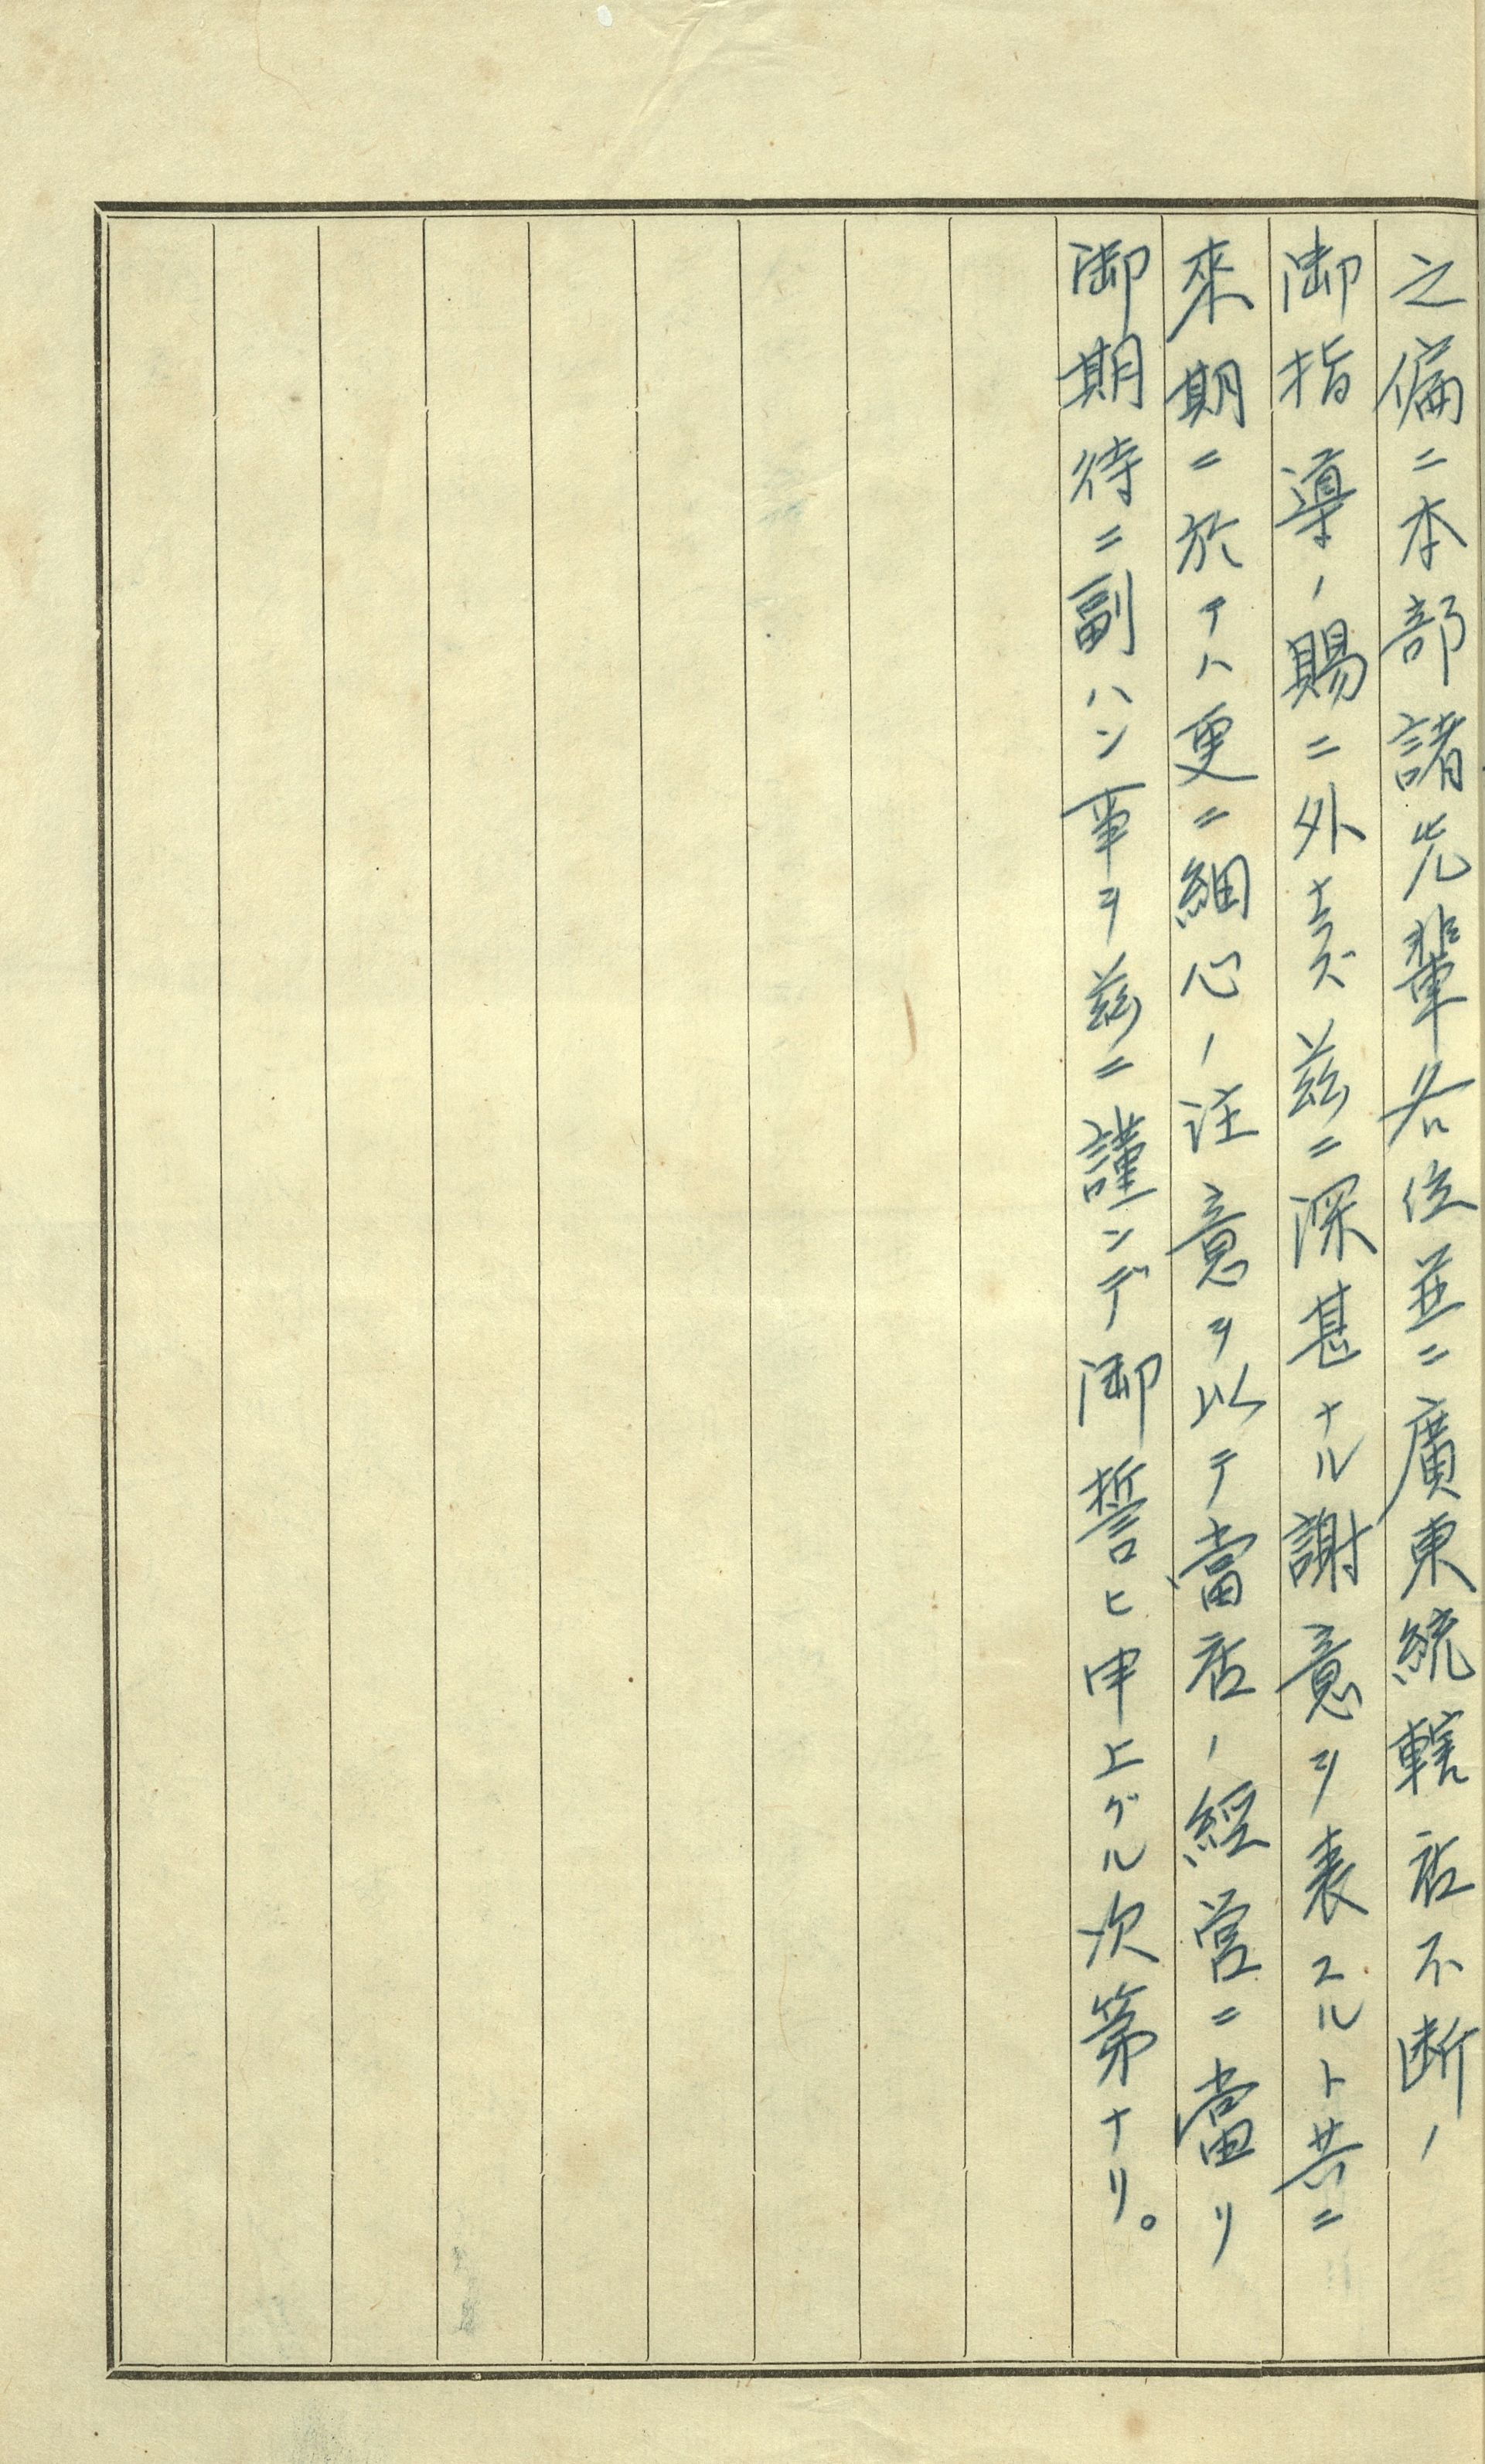 之偏ニ本部諸先輩各位並ニ廣東統轄店不断ノ
御指導ノ賜ニ外ナラズ茲ニ深甚ナル謝意ヲ表スルト共ニ
來期ニ於テハ更ニ細心ノ注意ヲ以テ當店ノ經営ニ當リ
御期待ニ副ハン事ヲ茲ニ謹ンデ御誓ヒ申上グル次第ナリ。